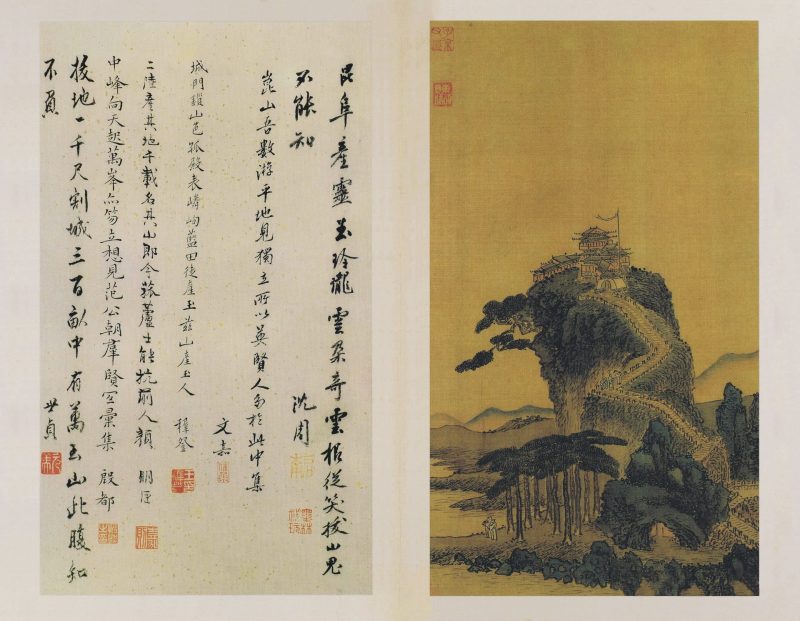 昆阜產靈玉玲瓏雲朶奇雲根從笑拔山鬼
不能知 沈周
崑山吾數游平地見獨立所以英賢人多於此中集
文嘉
城門鎖山色孤殿表嶙峋藍田徒產玉茲山產玉人 穉登
二陸產其地千載名其山即今菰蘆士能抗前人顏 明臣
中峰向天起萬峯亦笏立想見范公朝羣賢宜彙集 殷都
拔地一千尺割城三百畝中有萬玉山此腹知
不負 世貞